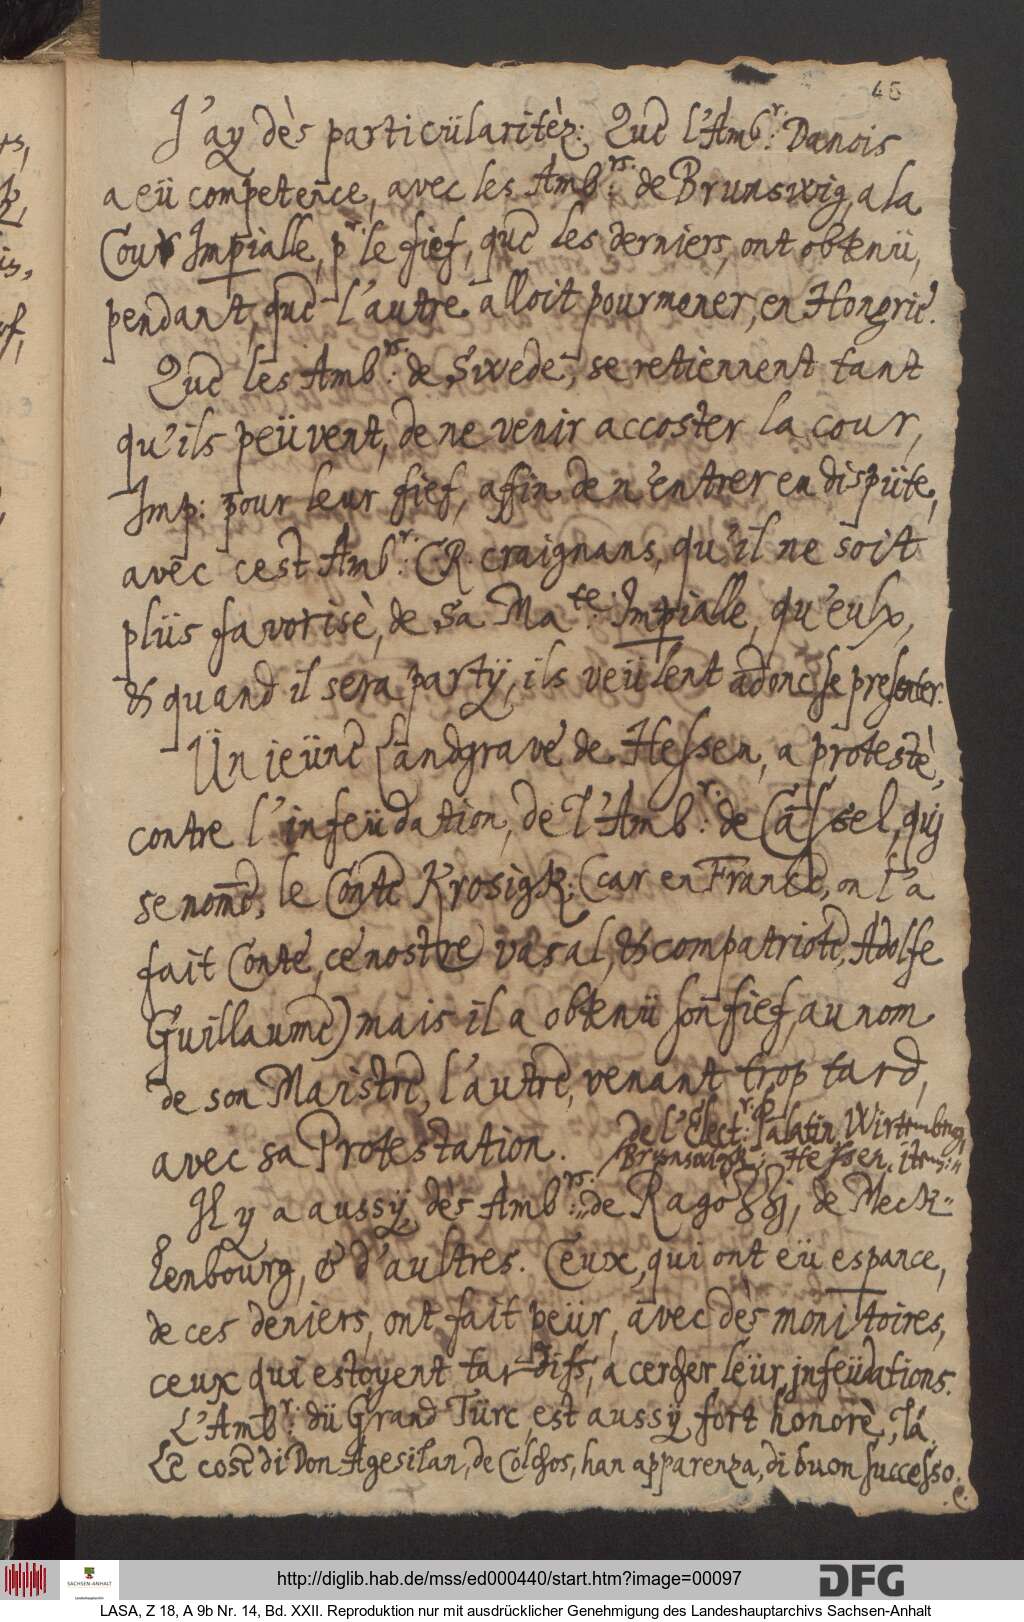 46
J'ay dès particülaritèz: Que l'Amb.r: Danois
a eü competence, avec les Amb.rs: de Brunswig, a la
Cour Impialle, p.r le fief, que les derniers, ont obtenü,
pendant, que l'autre alloit pourmener, en Hongrie.
Que les Amb.rs: de Swede, se retiennent tant
qu'ils peüvent, de ne venir accoster la cour,
Imp: pour leur fief, affin de n'entrer en dispüte,
avec cest Amb.r: CR. craignans, qu'il ne soit
plüs favorisè, de Sa Ma.te: Impialle, qu'eulx,
& quand il sera partÿ, ils veülent adonc se presenter.
Ün jeüne Landgrave de Hessen, a protestè,
contre l'infeüdation, de l'Amb.r: de Cassel, quj
se nom̄e, le Conte Krosigk: (car en France, on l'a
fait Conte, ce nostre vasal, & compatriote, Adolfe
Guillaume) mais il a obtenü son fief, au nom
de son Maistre, l'autre, venant trop tard,
avec sa Protestation.
de l'Elect.r: Palatin, Wirtemberg,
Brunswigk: Hessen, item:
Il y a aussÿ, dès Amb.rs: de Ragozzj, de Meck-
lenbourg, & d'aultres. Ceux, qui ont eü espance,
de ces deniers, ont fait peür, avec dès monitoires,
ceux qui estoyent tardifs, a cercher leür infeüdations.
L'Amb.r: dü Grand Türc, est aussÿ fort honorè, là.
Le cose di Don Agesilan, de Colchos, han apparenza, di buon successo.
e.
http://diglib.hab.de/mss/ed000440/start.htm?image=00097
DFG
SACHSEN-ANHALT
LASA, Z 18, A 9b Nr. 14, Bd. XXII. Reproduktion nur mit ausdrücklicher Genehmigung des Landeshauptarchivs Sachsen-Anhalt